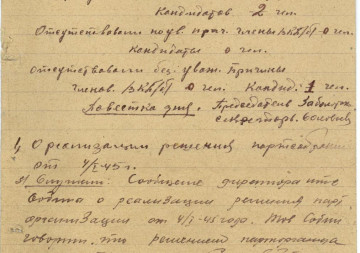 Кандидатов 2 чел.
Отсутствовали по ув. прич. члены ВКП(б) 0 чел.
Кандидаты 0 чел.
Отсутствовали без уваж. причины
членов ВКП(б) 0 чел. Кандид. 1 чел.
Повестка дня. Председатель
секретарь.
1) О реализации решения партсобрания
от 4/I-45 г.
Слушали: Сообщение директора
о реализации решения парт
организации от 4/I-45 года. Тов
говорит, что решением парторганиза